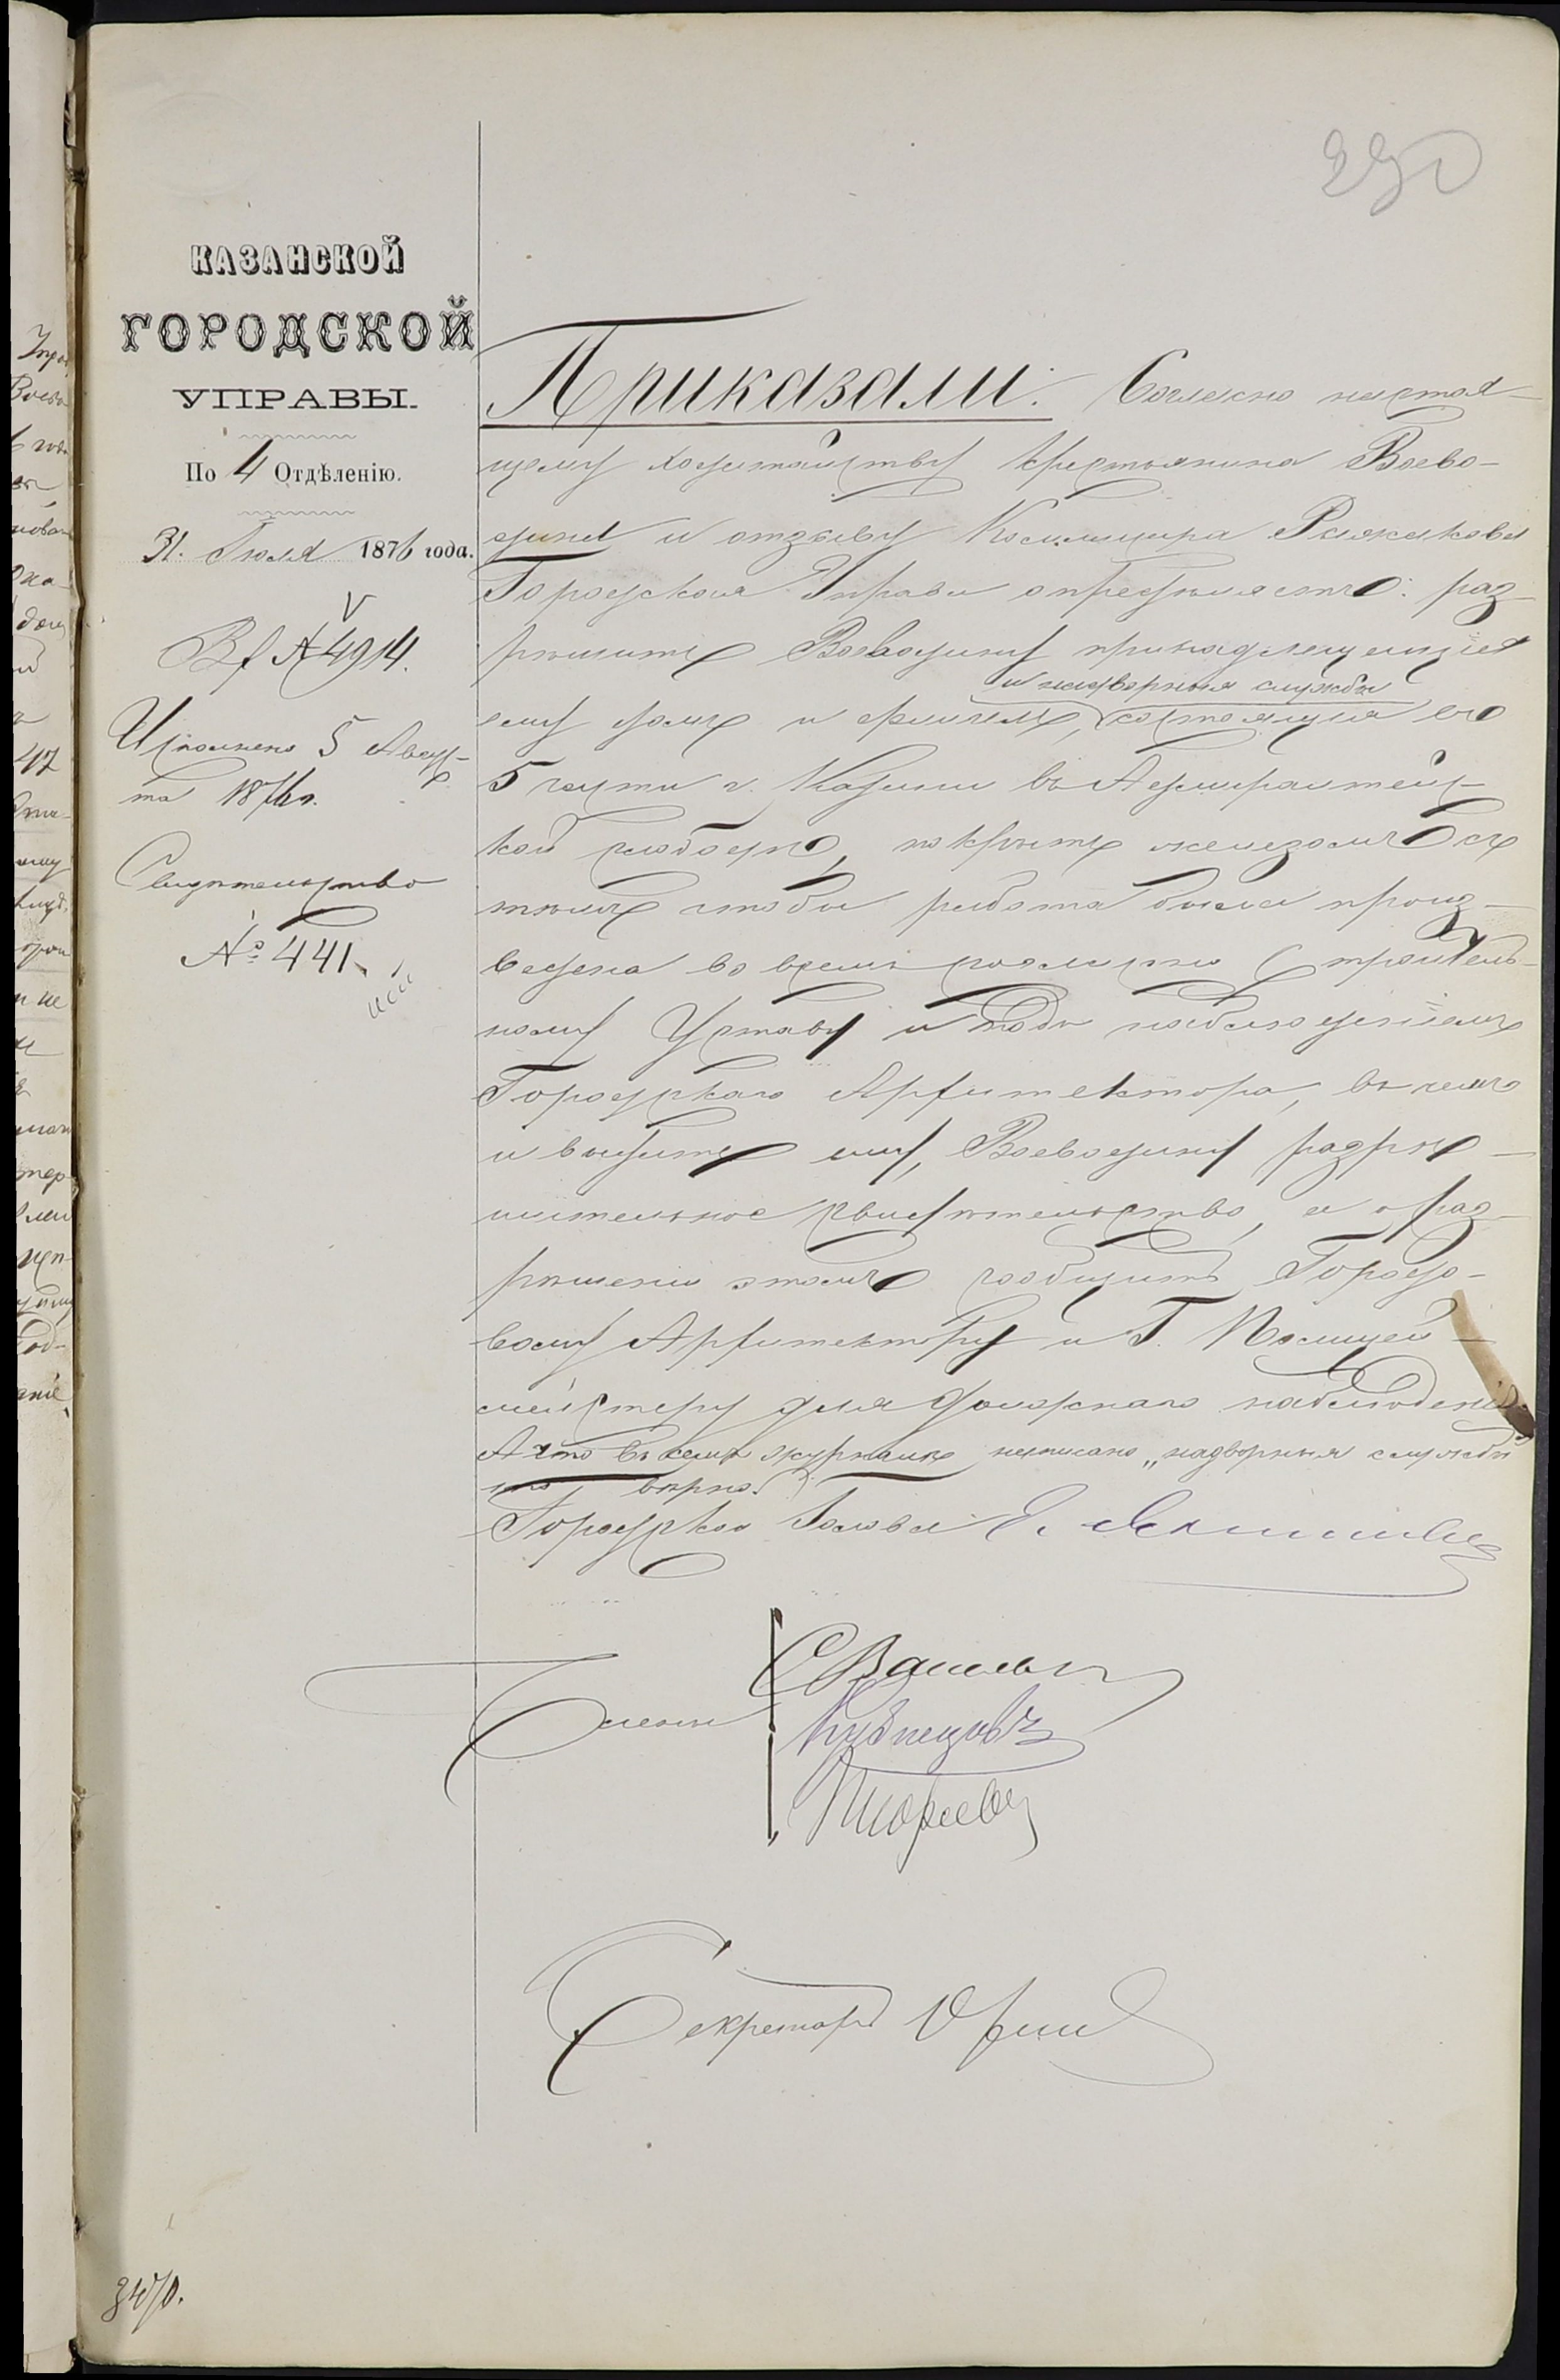 290
КАЗАНСКОЙ
ГОРОДСКОЙ
УПРАВЫ.
По 4 Отдѣленію.
31. Іюля 1876 года.
Вх №4914.
Исполнено 5 Авгус-
та 1876 г.
Свидѣтельство
№ 441.
Приказали: Согласно настоя-
щему ходатайству крестьянина Воево-
дина и отзыву
Городская Управа опредѣляетъ: раз-
рѣшить Воеводину принадлежащія
и надворныя службы
ему домъ и флигель, состоящія въ
5 части г. Казани въ Адмиралтейс-
кой слободѣ, покрыть желѣзомъ съ
тѣмъ чтобы работа была произ-
ведена во всемъ согласно Строитель-
ному Уставу и подъ наблюденіемъ
Городскаго Архитектора, въ чемъ
и выдать ему, Воеводину разрѣ-
шительное свидѣтельство, а о раз-
рѣшеніи этомъ сообщить Городо-
вому Архитектору и Г. Полицей-
мейстеру для должнаго наблюденія.
А что въ семъ журналѣ написано „надворныя службы
то вѣрно.
Городской Голова Э.
Члены
Кузнецовъ
Секретарь
3470.